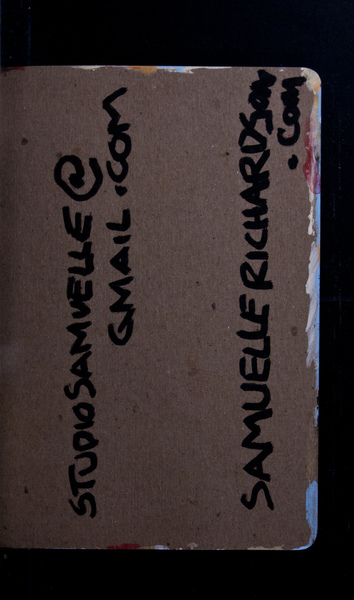 STUDIOSAMUELLE@
GMAIL.COM
SAMUELLERICHARDSON
.COM